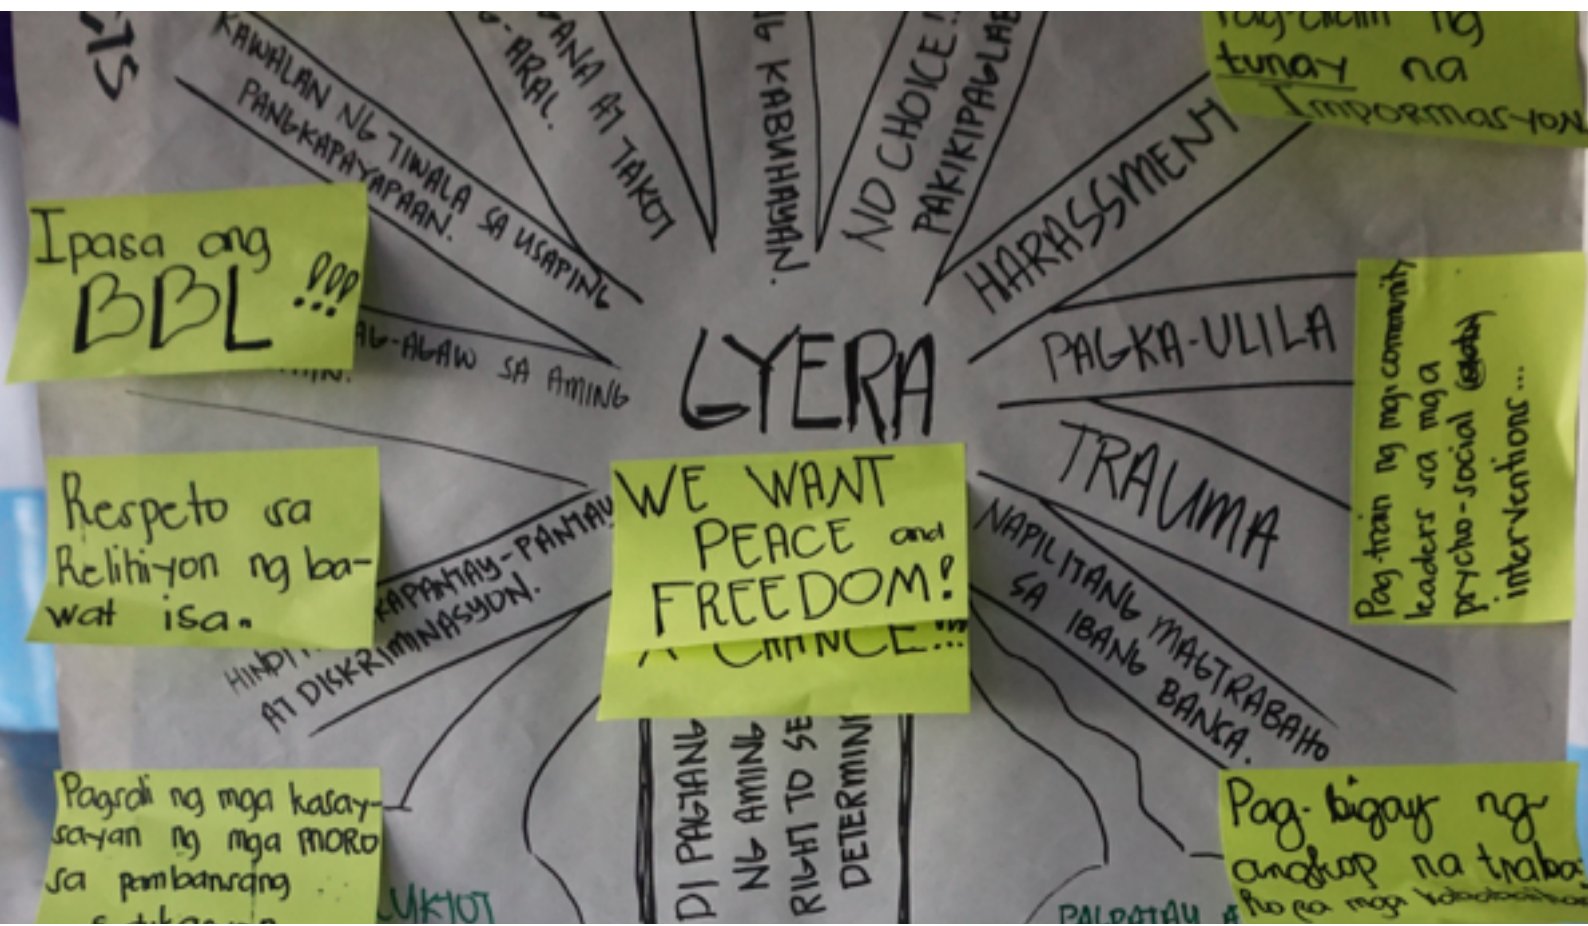 KAWALAN NG TIWALA SA USAPING
PANGKAPAYAPAAN.
AT TAKOT
ARAL.
KABUHAYAN.
NO CHOICE!!
HARASSMENT
tunay na
Impormasyon
Ipasa ang
BBL !!!
AG-AGAW SA AMING
GYERA
PAGKA-ULILA
TRAUMA
Pag-train ng mga community
leaders sa mga
psycho-social
interventions...
Respeto sa
Relihiyon ng ba-
wat isa.
KAPANTAY-PANTAY
AT DISKRIMINASYON.
WE WANT
PEACE and
FREEDOM!
A CHANCE!!!
NAPILITANG MAGTRABAHO
SA IBANG BANSA.
Pagsali ng mga kasay-
sayan ng mga MORO
sa pambansang
DI PAGTANG
NG AMING
RIGHT TO SE
DETERMIN
Pag-bigay ng
angkop na traba-
ho pa mga